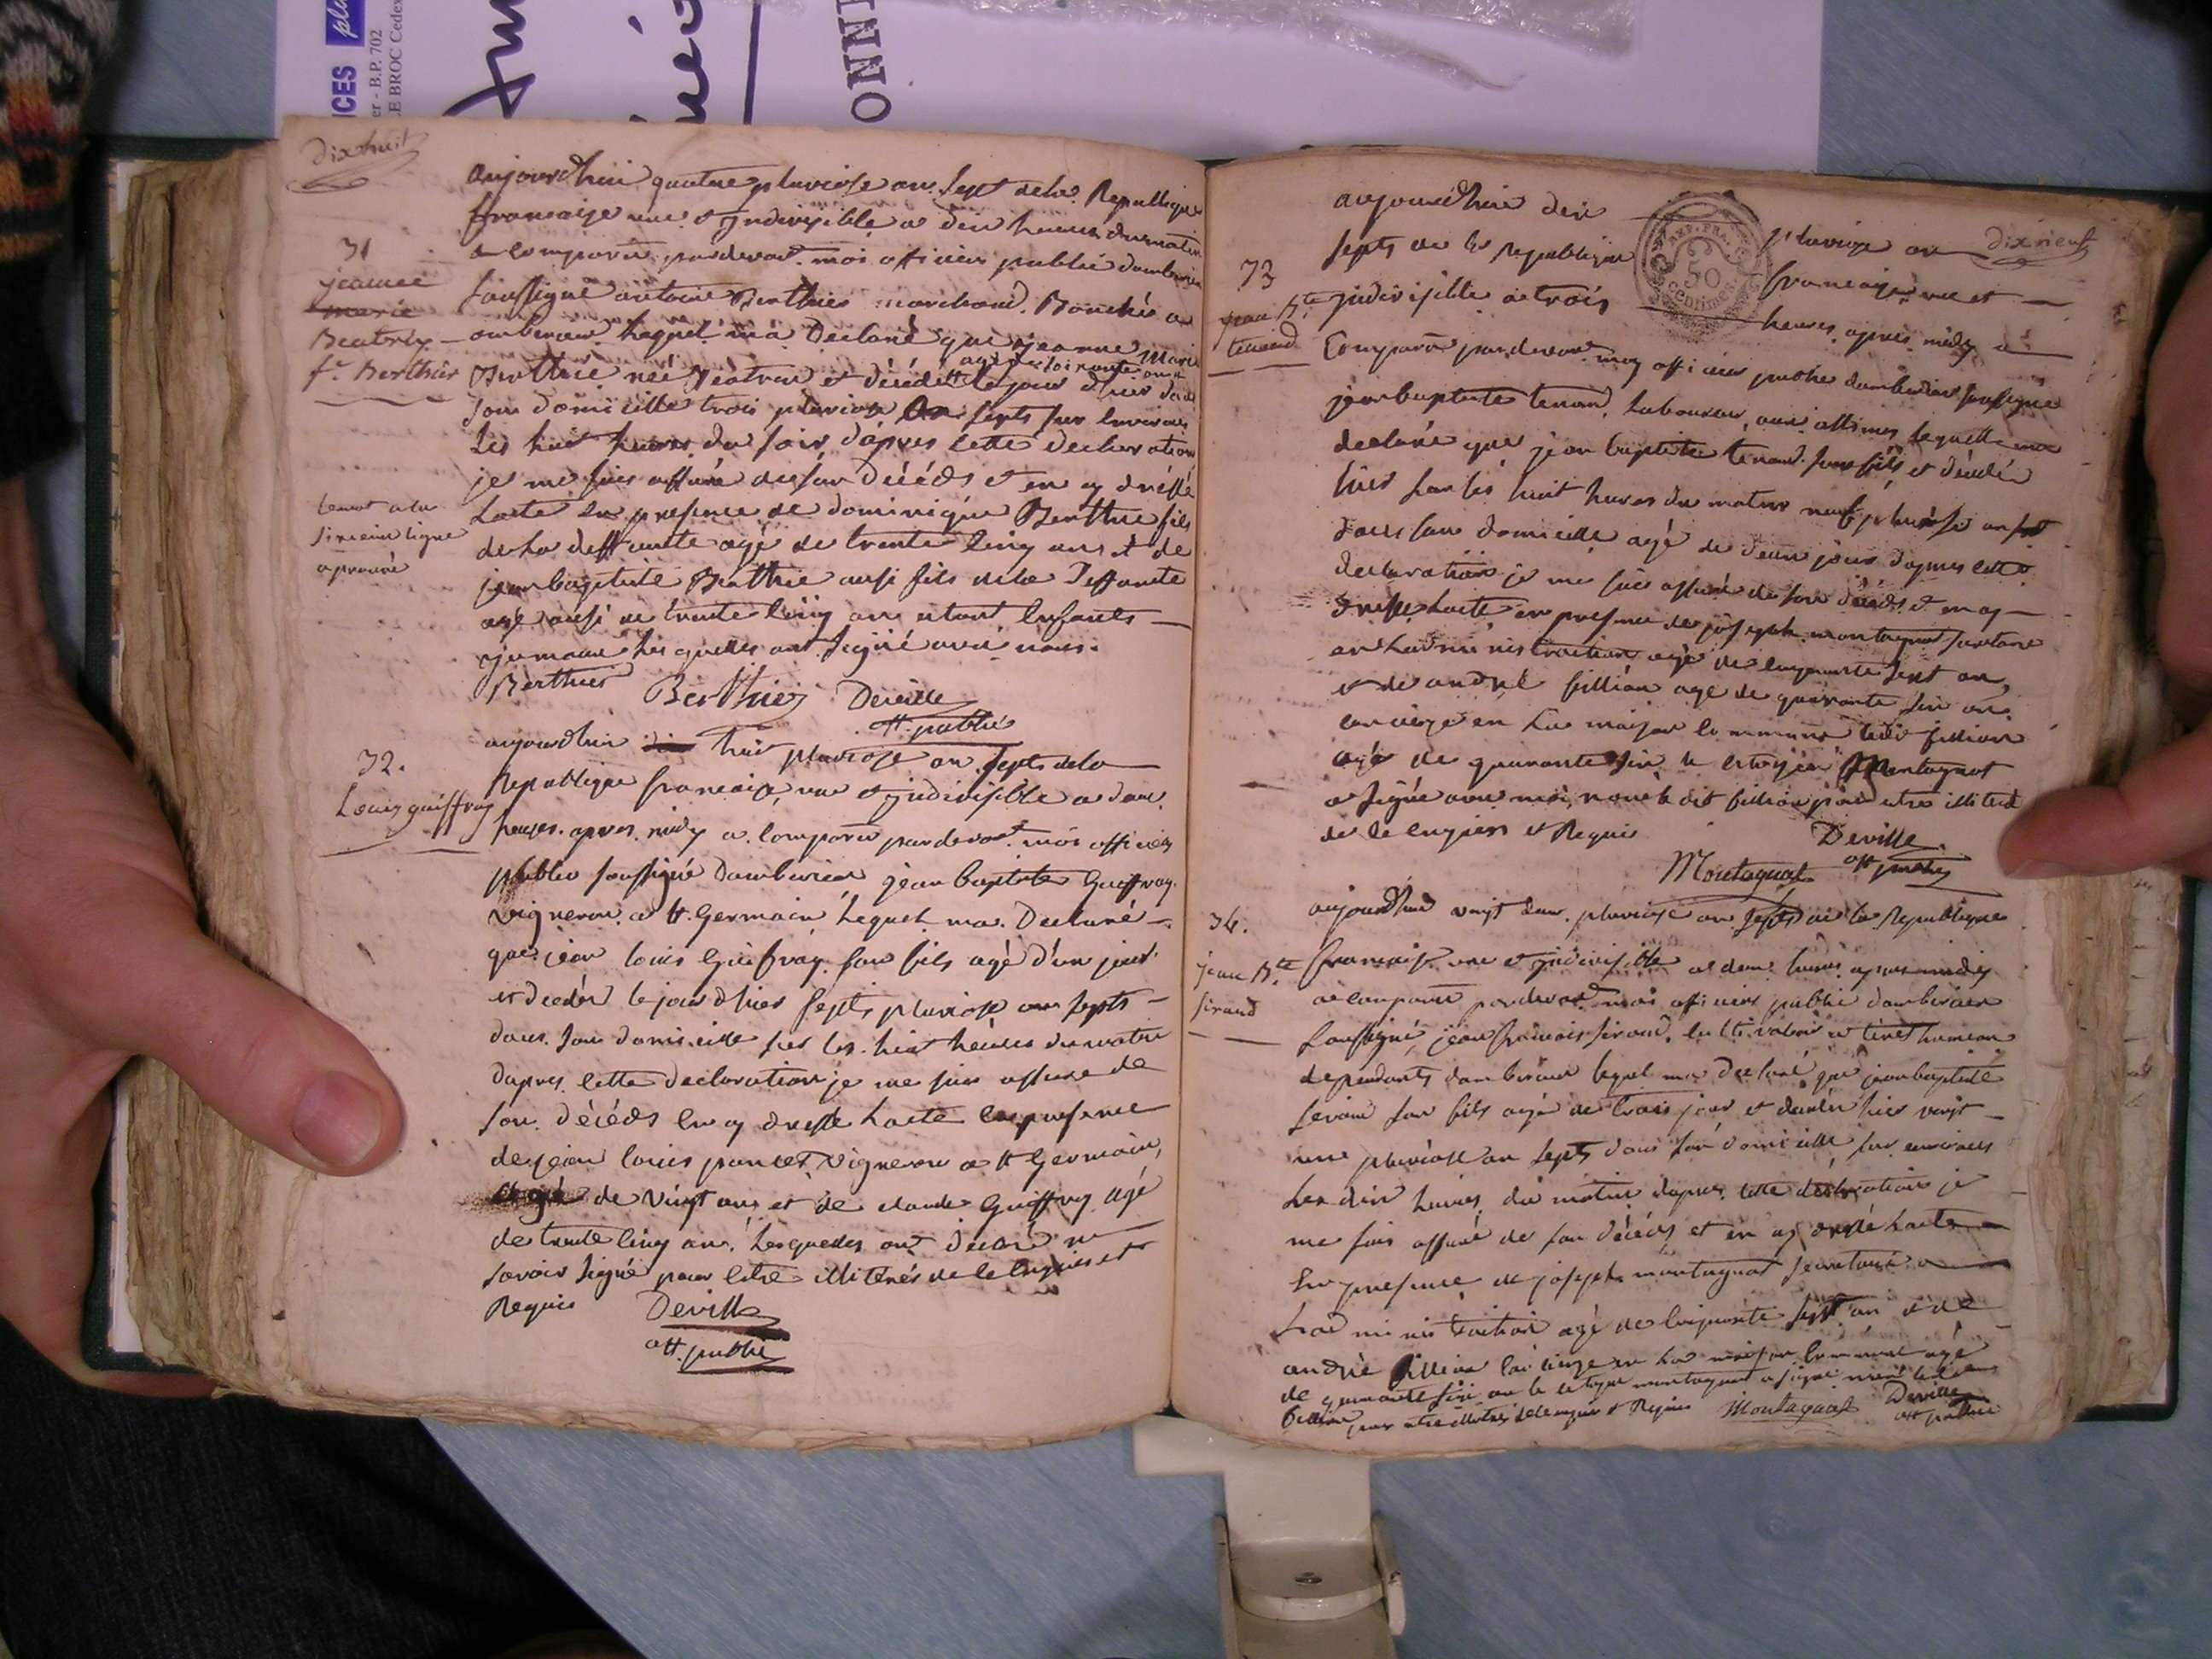 ICES plu
er - B.P. 702
LE BROC Cedex
ONN
dix huit
aujourdhui quatre pluviose an sept de la Republique
francaise une et Indivisible a dix heures du matin
a comparu pardevant moi officier public damberieu
soussigné antoine Berthier marchand Bouché a
amberieu lequel ma Declaré que jeanne Marie
Berthier née Beatrix et décédé le jour dhier dans
agé de soixante ans
son domicille trois pluviose an septs sur les environs
les huit heures du soir dapres cette declaration
je me suis assuré de son Décéds et en ay dressé
lacte en presence de dominique Berthier fils
de la deffunte agé de trente cinq ans et de
jean baptiste Berthier aussi fils de la Deffunte
agé aussi de trente cinq ans etant Enfants
jumeau lesquelles ont signé avec nous.
Berthier Berthier Deville
off. public
31
jeanne
marie
Beatrix
fe. Berthier
a la
sixieme ligne
aprouvé
32.
Louis guiffray
aujourdhui huit pluviose an septs de la
Republique francaise une et jndivisible a deux
heures apres midy a comparu pardevant moi officier
public soussigné damberieu jean baptiste Guiffray
vigneron a st. Germain lequel ma Declaré
que jean louis Guiffray son fils agé d'un jour
et decedé le jour dhier septs pluviose an septs
dans son domicille sur les huit heures du matin
dapres cette declaration je me suis assuré de
son décéds en ay dressé lacte en presence
de jean louis poncet vigneron a st Germain,
agé de vingt ans et de claude Guiffray agé
de trente cinq ans, lesquelles ont déclaré ne
savoir signé pour etre illiterés de ce enquis et
Requis Deville
off. public
dix neuf
aujourdhui dix pluviose an
septs de la Republique francaise une et
REP. FRA.
50
centimes
jndivisible a trois heures apres midy a
Comparu pardevant moy officier public damberieu soussigné
jean baptiste tenand, laboureur, lequelle ma
declaré que jean baptiste tenand son fils, et décédé
hier sur les huit heures du matin neuf pluviose an sept
dans son domicille agé de deux jours dapres cette
declaration je me suis assuré de son décéds et en ay
dressé lacte en presence de joseph montagnat secretaire
en ladministration agé de cinquante sept ans,
et de andré fillion agé de quarante six ans
concierge en la maison commune
agé de quarante six le citoyen Montagnat
a signé avec moi, non le dit fillion pour etre illiteré
de ce enquiers et Requis Deville
Montagnat off public
33
jean Bte
tenand
34.
jean Bte
sirand
aujourdhui vingt deux pluviose an septs de la Republique
francaise une et jndivisible a deux heures apres midy
a comparu pardevant moi officier public damberieu
soussigné, jean francois sirand, cultivateur a tiret hameau
dependants damberieu lequel ma declaré que jean baptiste
sirand son fils agé de trois jour et decedé hier vingt
une pluviose an septs dans son domicille sur environs
les dix heures du matin dapres cette declaration je
me suis assuré de son décéds et en ay dressé lacte
En presence de joseph montagnat secretaire a
Ladministration agé de cinquante sept ans et de
andré fillion concierge en la maison commune agé
de quarante six ans le citoyen montagnat a signé non le dit
fillion pour etre illiteré de ce enquis et Requis Montagnat Deville
off public